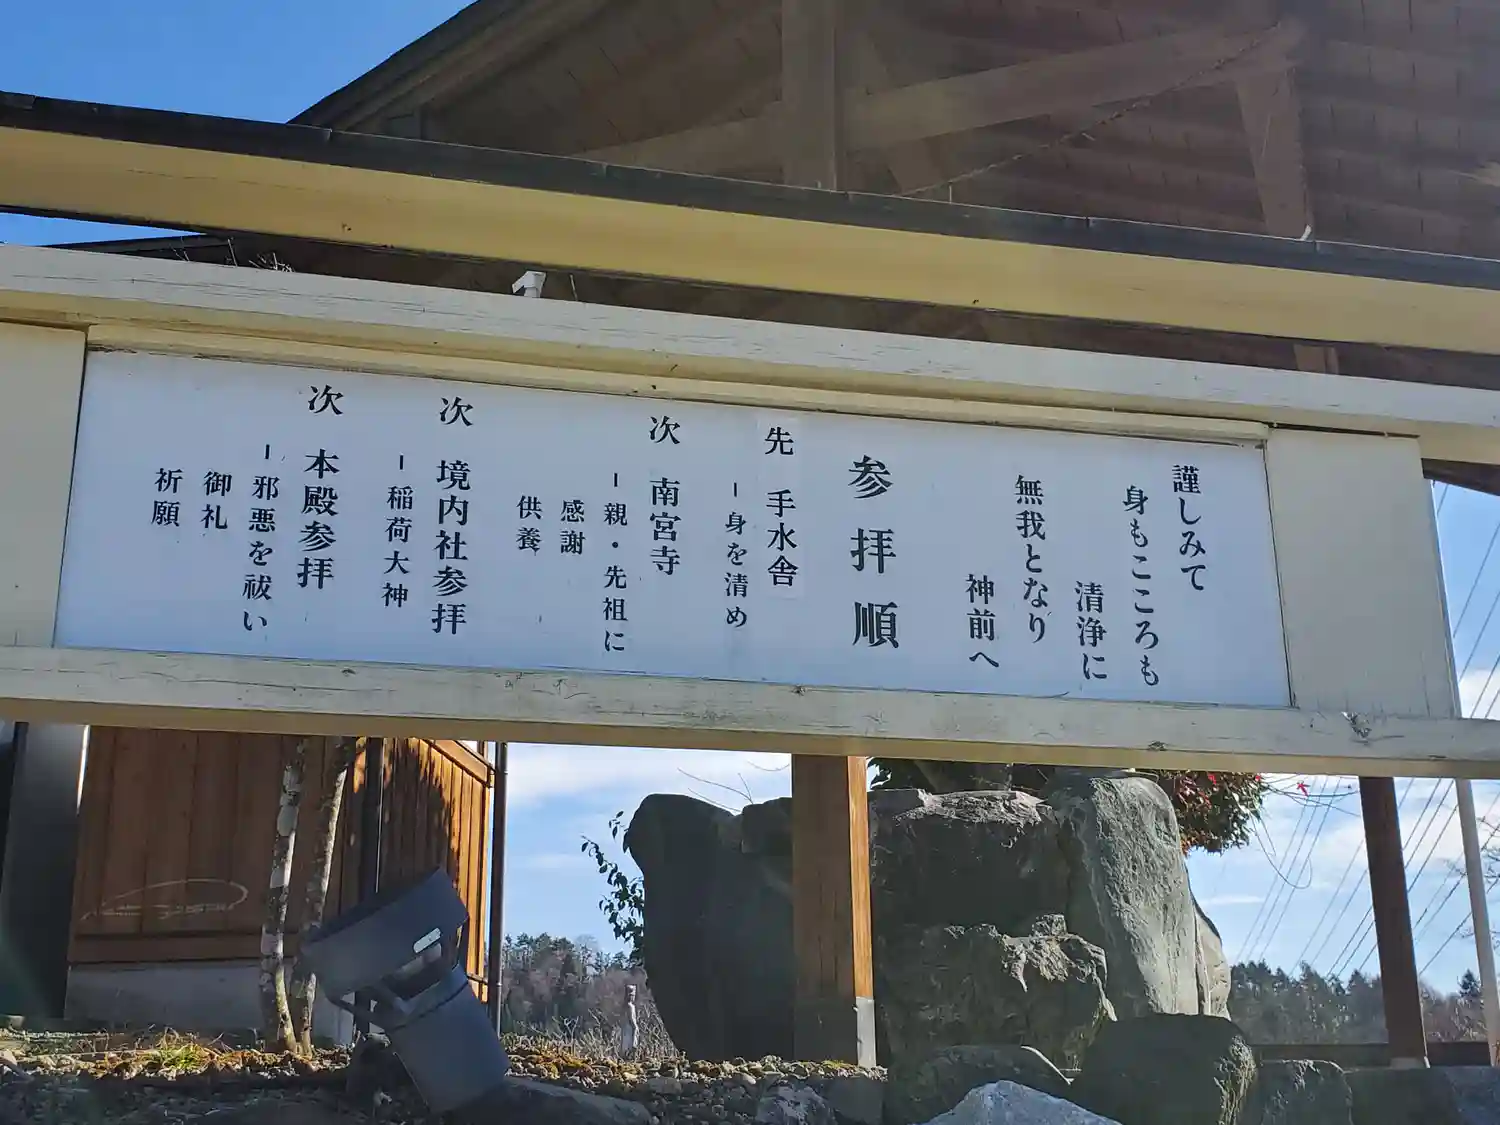 謹しみて
身もこころも
清浄に
無我となり
神前へ
参拝順
先 手水舎
-身を清め
次 南宮寺
-親・先祖に
感謝
供養
次 境内社参拝
-稲荷大神
次 本殿参拝
-邪悪を祓い
御礼
祈願